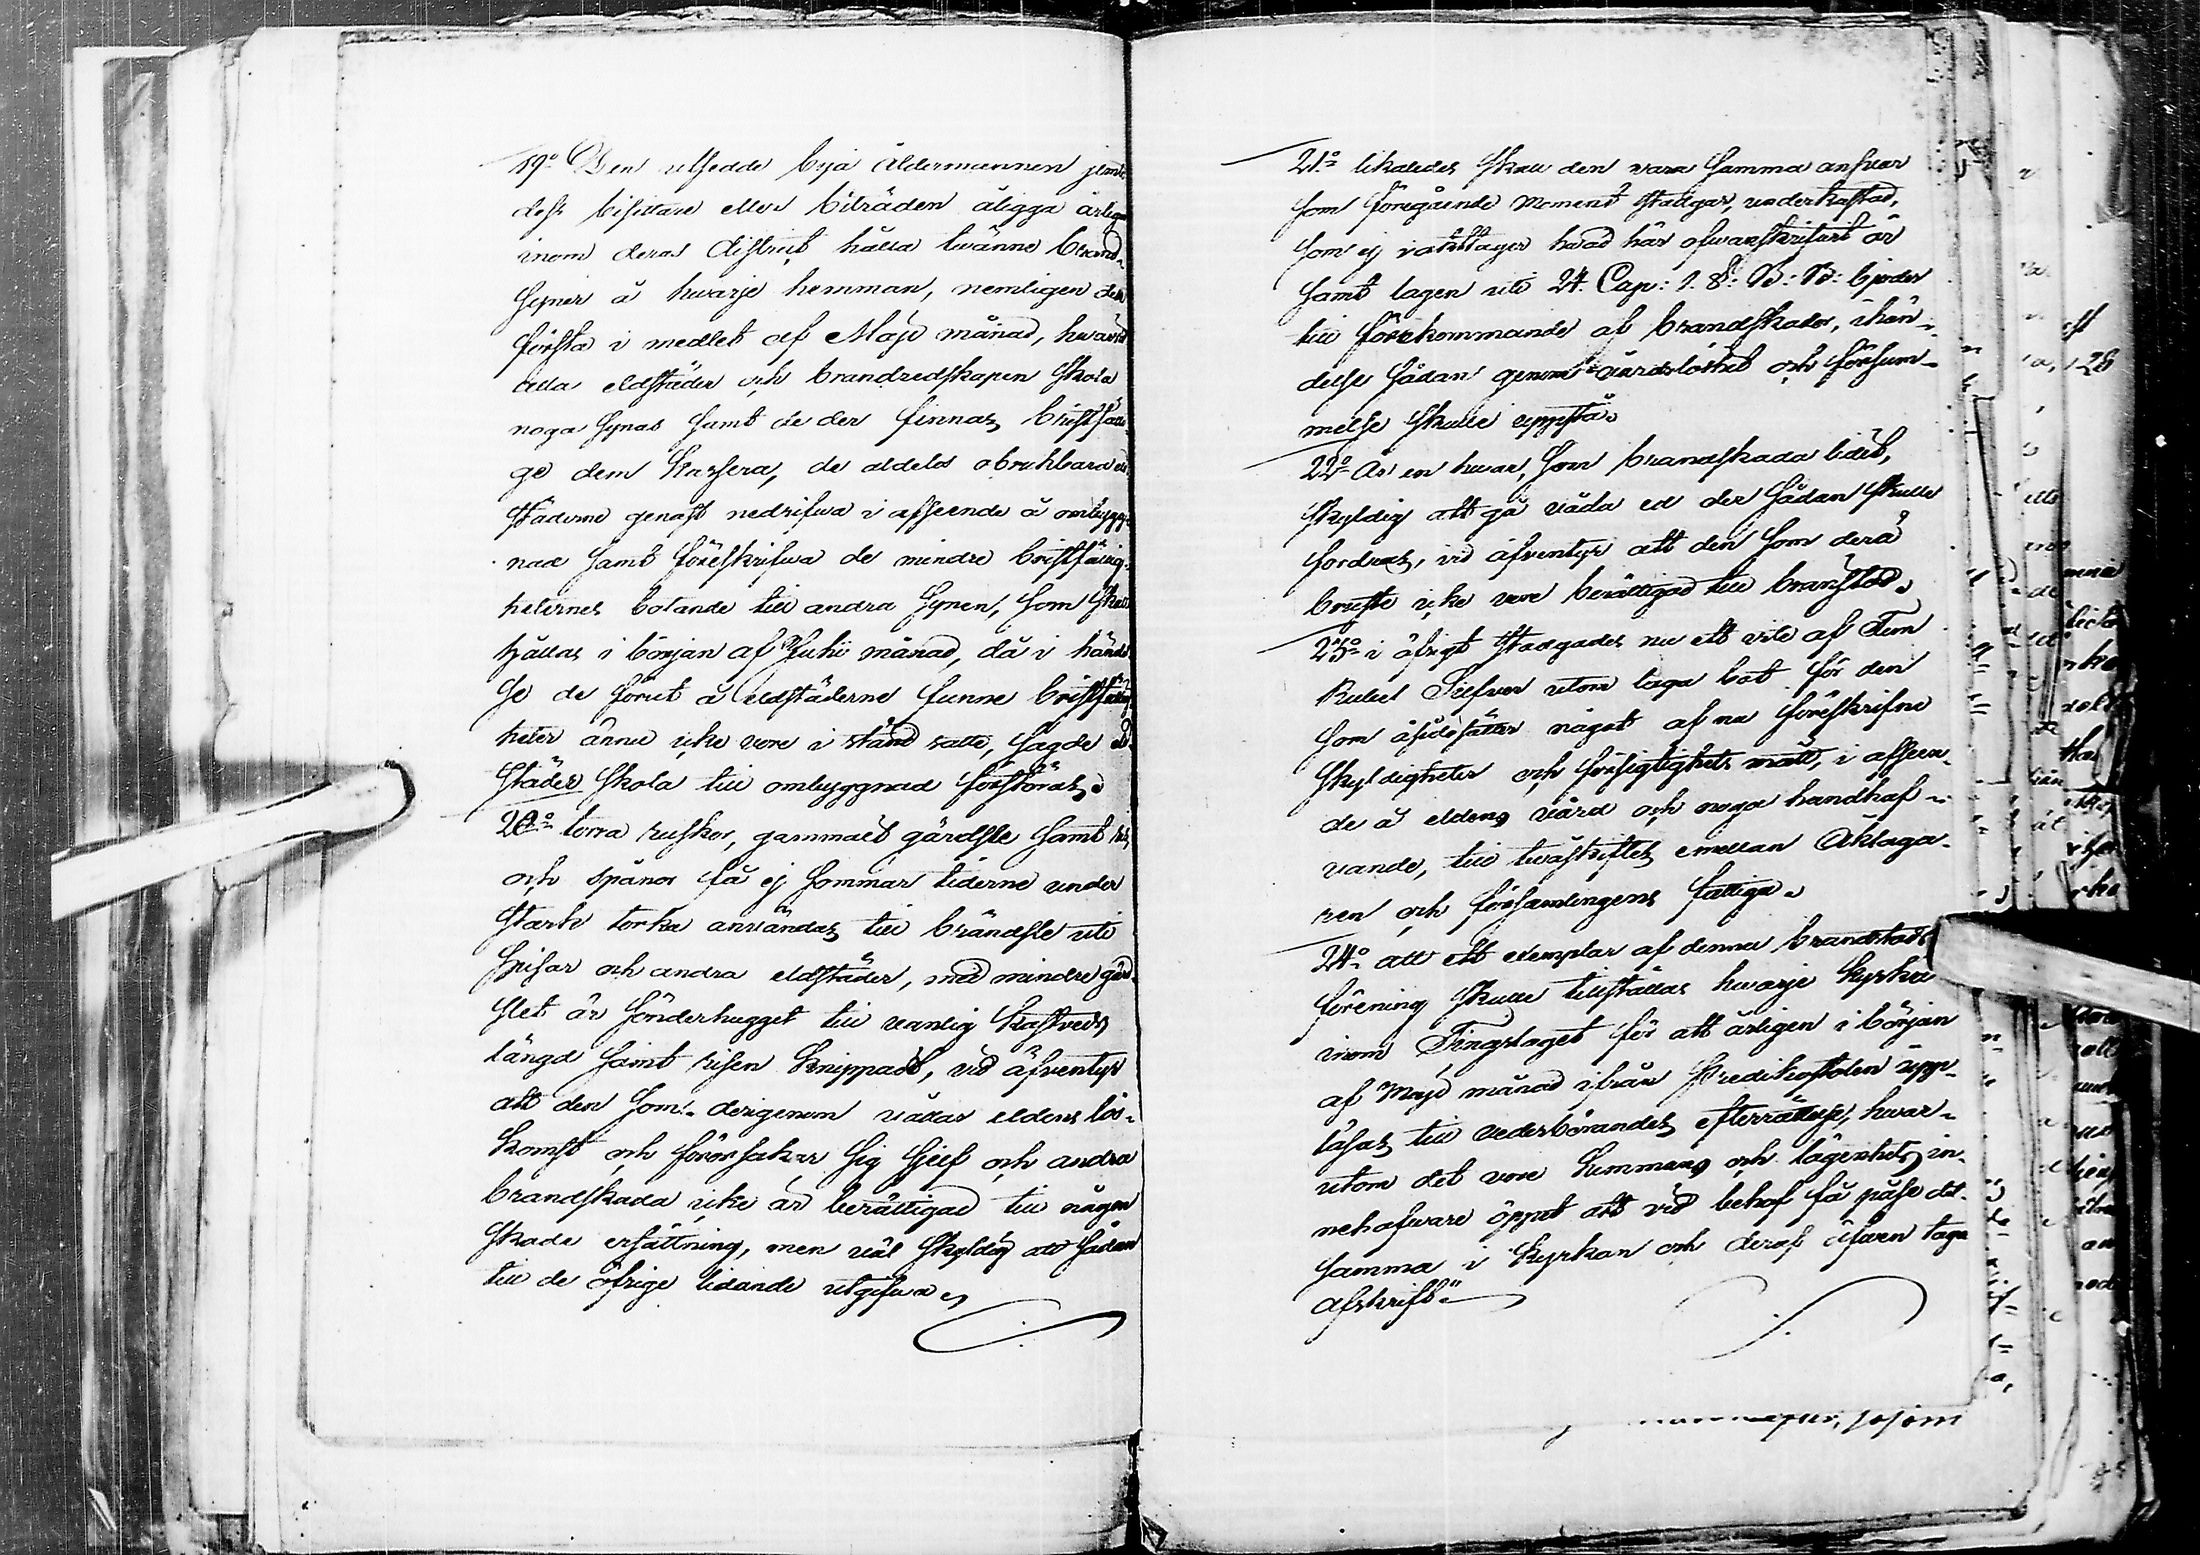 19:o Den utsedde byä åldermannen jemte
dess bisittare eller biträden åligga årligen
inom deras district hålla twänne brand-
syner å hwarje hemman, nemligen den
första i medlet af Maji månad, hwarvid
alla eldstäder och brandredskapen skola
noga synas samt de der finnas bristfälli-
ge dem kassera, de aldeles obrukbara eld
städerne genast nedrifwa i afseende å ombygg-
nad samt föreskrifwa de mindre bristfällig-
heternes botande till andra synen, som skall
hållas i början af Julii månad, då i händel
se de förut å eldstäderne funne bristfällig
heter ännu icke vore i stånd satte, sagde eld-
städer skola till ombyggnad förstöras.
20:o torra ruskor, gammalt gärdsle samt ris
och spånor få ej sommar tiderne under
stark torka användas till brändsle uti
spisar och andra eldstäder, med mindre gärd-
slet är sönderhugget till vanlig kastveds
längd samt risen knippadt, vid äfventyr
att den som derigenom vållar eldens lös-
komst och förorsakar sig sjelf och andra
brandskada icke är berättigad till någon
skade ersättning, men väl skyldig att sådan
till de öfrige lidande utgifwa
21:o likaledes skall den vara samma answar
som föregående moment stadgar, underkastad,
som ej iakttager hwad här ofwanskrifwit är
samt lagen uti 24. Cap: 1. §: B: B: bjuder
till förekommande af brandskador, i hän-
delse sådan genom wårdslöshet och försum-
melse skulle uppstå.
22:o Är en hwar, som brandskada lidit,
skyldig att gå våda ed der sådan skulle
fordras, vid äfventyr att den som derå
bruste icke vore berättigad till branstod.
23:o i öfrigt stadgades nu ett vite af Fem
Rubel Silfver utom laga bot för den
som åsidosätter något af nu föreskrifne
skyldigheter och försigtighets mått, i afseen-
de å eldens vård och noga handhaf-
vande, till twåskiftes emellan Åklaga-
ren och församlingens fattiga.
24:o att ett exemplar af denna brandstods
förening skulle tillställas hwarje kyrka
inom Tingslaget för att årligen i början
af Maji månad ifrån Predikostolen upp-
läsas till vederbörandes efterrättelse, hwar-
utom det vore hemmans och lägenhets in-
nehafware öppet att vid behof få påse det-
samma i kyrkan och deraf äfwen taga
afskrift